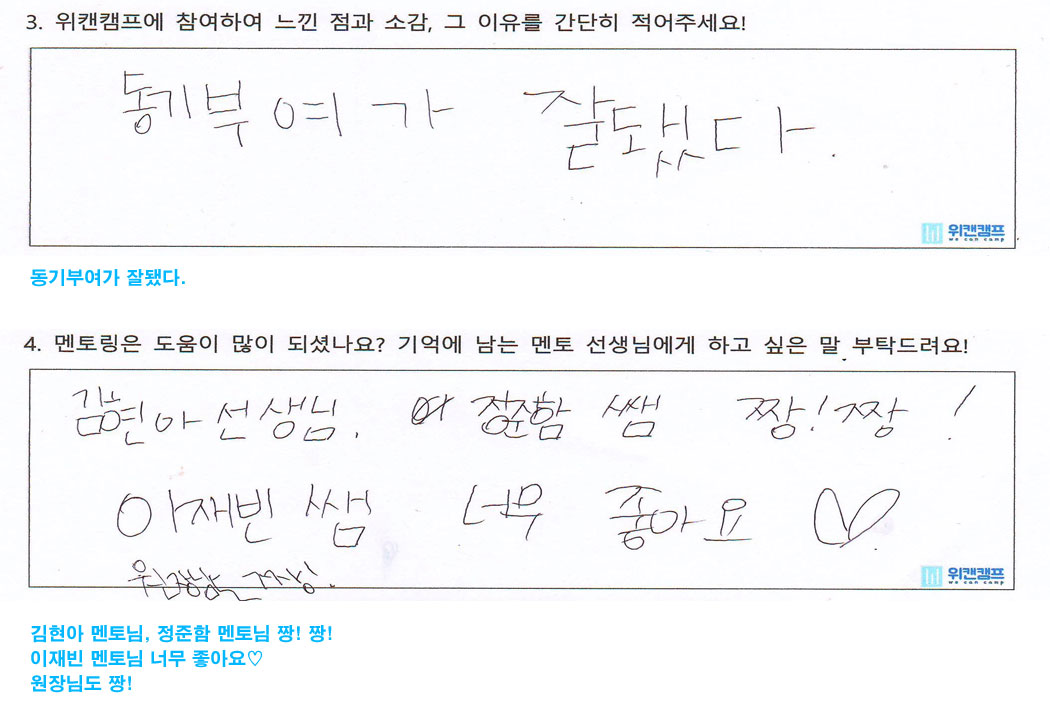 3. 위캔캠프에 참여하여 느낀 점과 소감, 그 이유를 간단히 적어주세요!
동기부여가 잘됐다.
위캔캠프
we can camp
동기부여가 잘됐다.
4. 멘토링은 도움이 많이 되셨나요? 기억에 남는 멘토 선생님에게 하고 싶은 말 부탁드려요!
김현아선생님. 정준함 쌤 짱! 짱!
이재빈 쌤 너무 좋아요♡
원장님 짱.
위캔캠프
we can camp
김현아 멘토님, 정준함 멘토님 짱! 짱!
이재빈 멘토님 너무 좋아요♡
원장님도 짱!